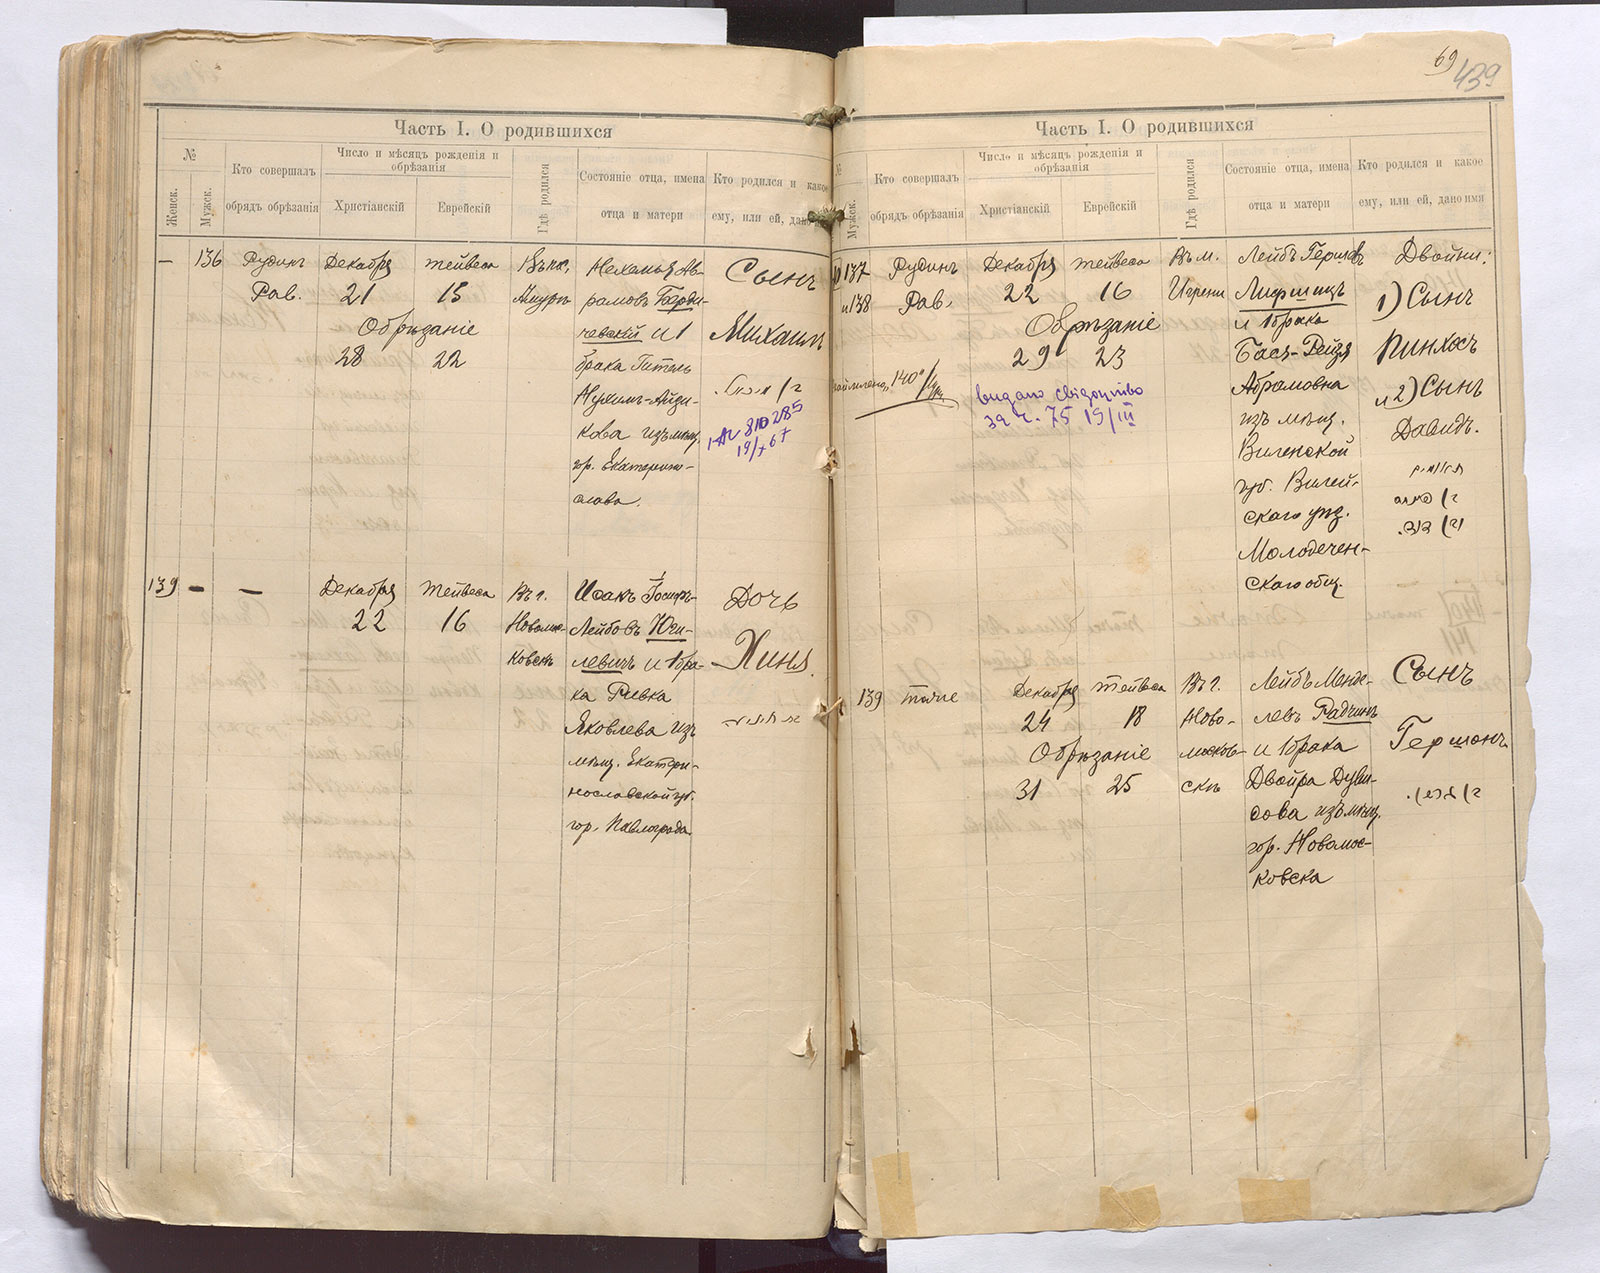 69
439
Часть I. О родившихся
№
Женск.
Мужск.
Кто совершалъ
обрядъ обрѣзанія
Число и мѣсяцъ рожденія и
обрѣзанія
Христіанскій
Еврейскій
Гдѣ родился
Состояніе отца, имена
отца и матери
Кто родился и какое
ему, или ей, дано
— 136
Рудинъ
Рав.
Декабря
21
Тейвеса
15
Обрѣзаніе
28 22
Въ пос.
Амуръ
Нехамья Ав-
рамовъ Берди-
чевскій и 1
брака Гитель
Нухимъ-Айзи-
кова изъ мѣщ.
гор. Екатерино-
слава.
Сынъ
Михаилъ
810285
19/X 67
139 — —
Декабря
22
Тейвеса
16
Въ г.
Новомос-
ковскъ
Исакъ Іосифъ-
Лейбовъ
левичъ и 1 бра-
ка Ривка
Яковлева изъ
мѣщ. Екатери-
нославской губ.
гор. Павлограда
Дочь
Хиня.
Часть I. О родившихся
№
Мужск.
Кто совершалъ
обрядъ обрѣзанія
Число и мѣсяцъ рожденія и
обрѣзанія
Христіанскій
Еврейскій
Гдѣ родился
Состояніе отца, имена
отца и матери
Кто родился и какое
ему, или ей, дано имя
137
и 138
Рудинъ
Рав.
Декабря
22
Тейвеса
16
Обрѣзаніе
29 23
140
видано свідоцтво
за ч. 75 19/III
Въ м.
Игрени
Лейбъ Гершовъ
Лифшицъ
и 1 брака
Бася-Рейзя
Абрамовна
изъ мѣщ.
Виленской
губ. Вилей-
скаго уѣз.
Молодечен-
скаго общ.
Двойни:
1) Сынъ
Пинхосъ
и 2) Сынъ
Давидъ.
139 тоже
Декабря
24
Тейвеса
18
Обрѣзаніе
31 25
Въ г.
Ново-
москов-
скъ
Лейбъ Менде-
левъ Радчинъ
и 1 брака
Двойра Дуви-
дова изъ мѣщ.
гор. Новомос-
ковска
Сынъ
Гершонъ.